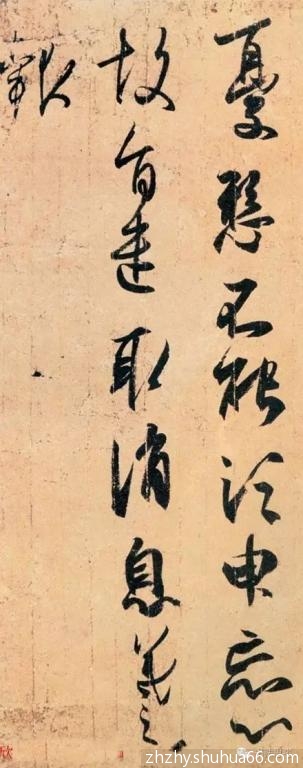 憂懸不能須臾忘心
故旨遣取消息羲之
報
欣
zhzhy.shuhua66.com